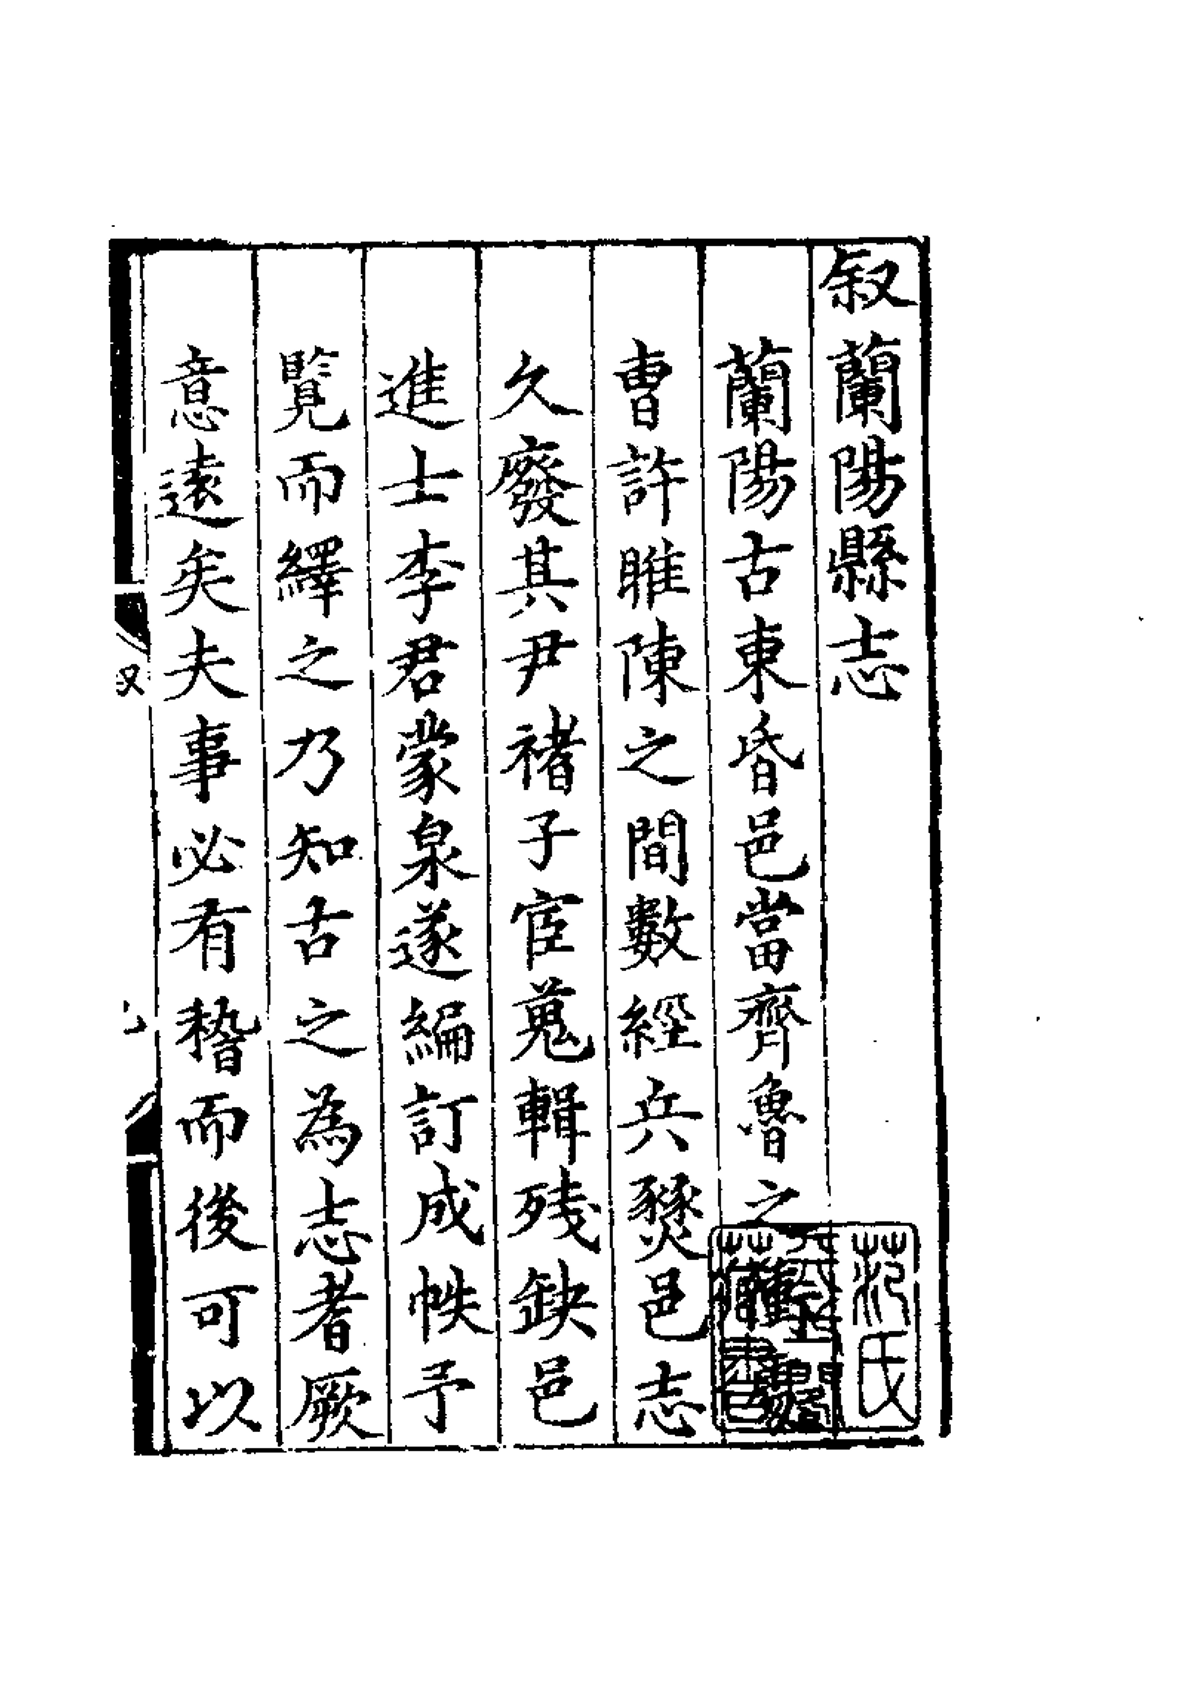 叙蘭陽縣志
蘭陽古東昏邑當齊魯之
曹許睢陳之間數經兵燹邑志
久廢其尹褚子宦蒐輯殘缺邑
進士李君蒙泉遂編訂成帙予
覽而繹之乃知古之為志者厥
意遠矣夫事必有稽而後可以
叙
范氏
天一閣
藏書